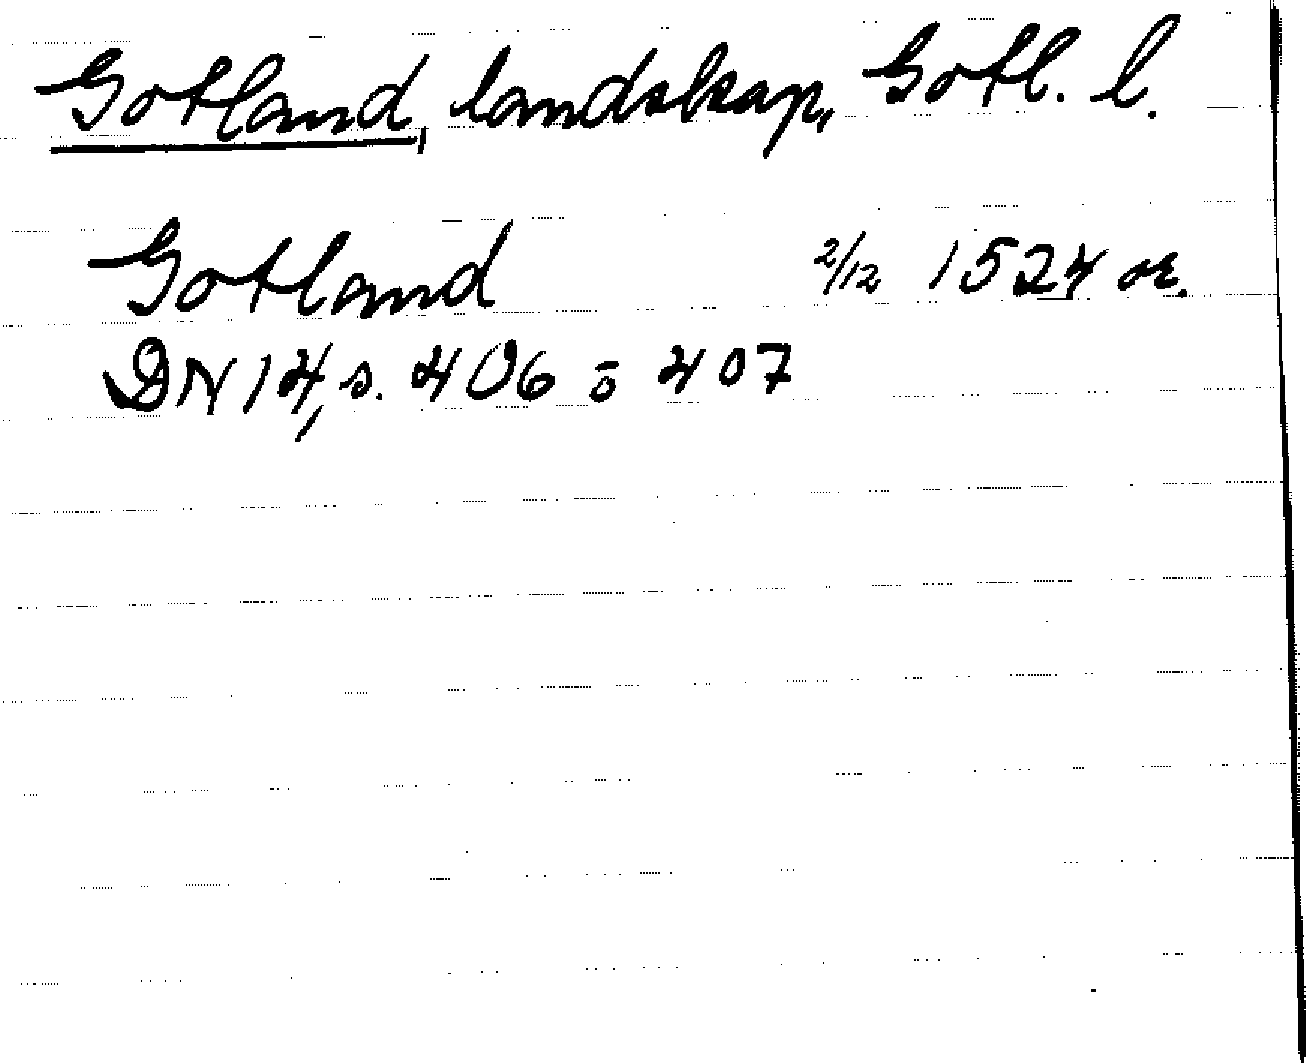 Gotland, landskap, Gotl. l.
Gotland 2/12 1524 or.
DN 14, s. 406 o 407